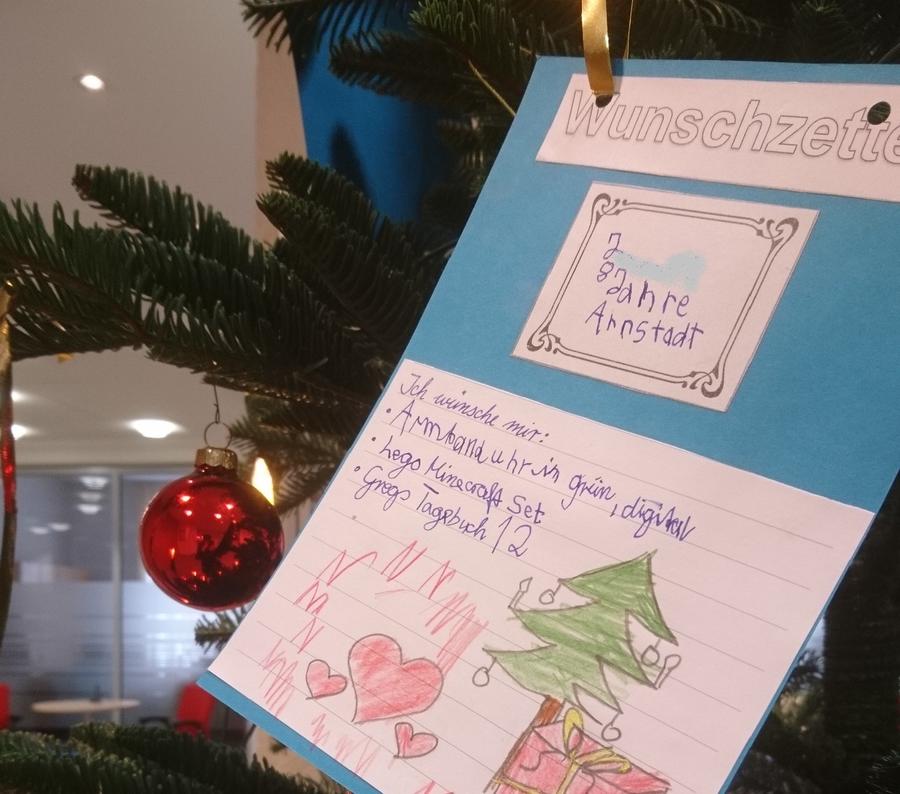 Wunschzette
J
8 Jahre
Arnstadt
Ich wünsche mir:
• Armbanduhr in grün, digital
• Lego Minecraft Set
• Gregs Tagebuch 12